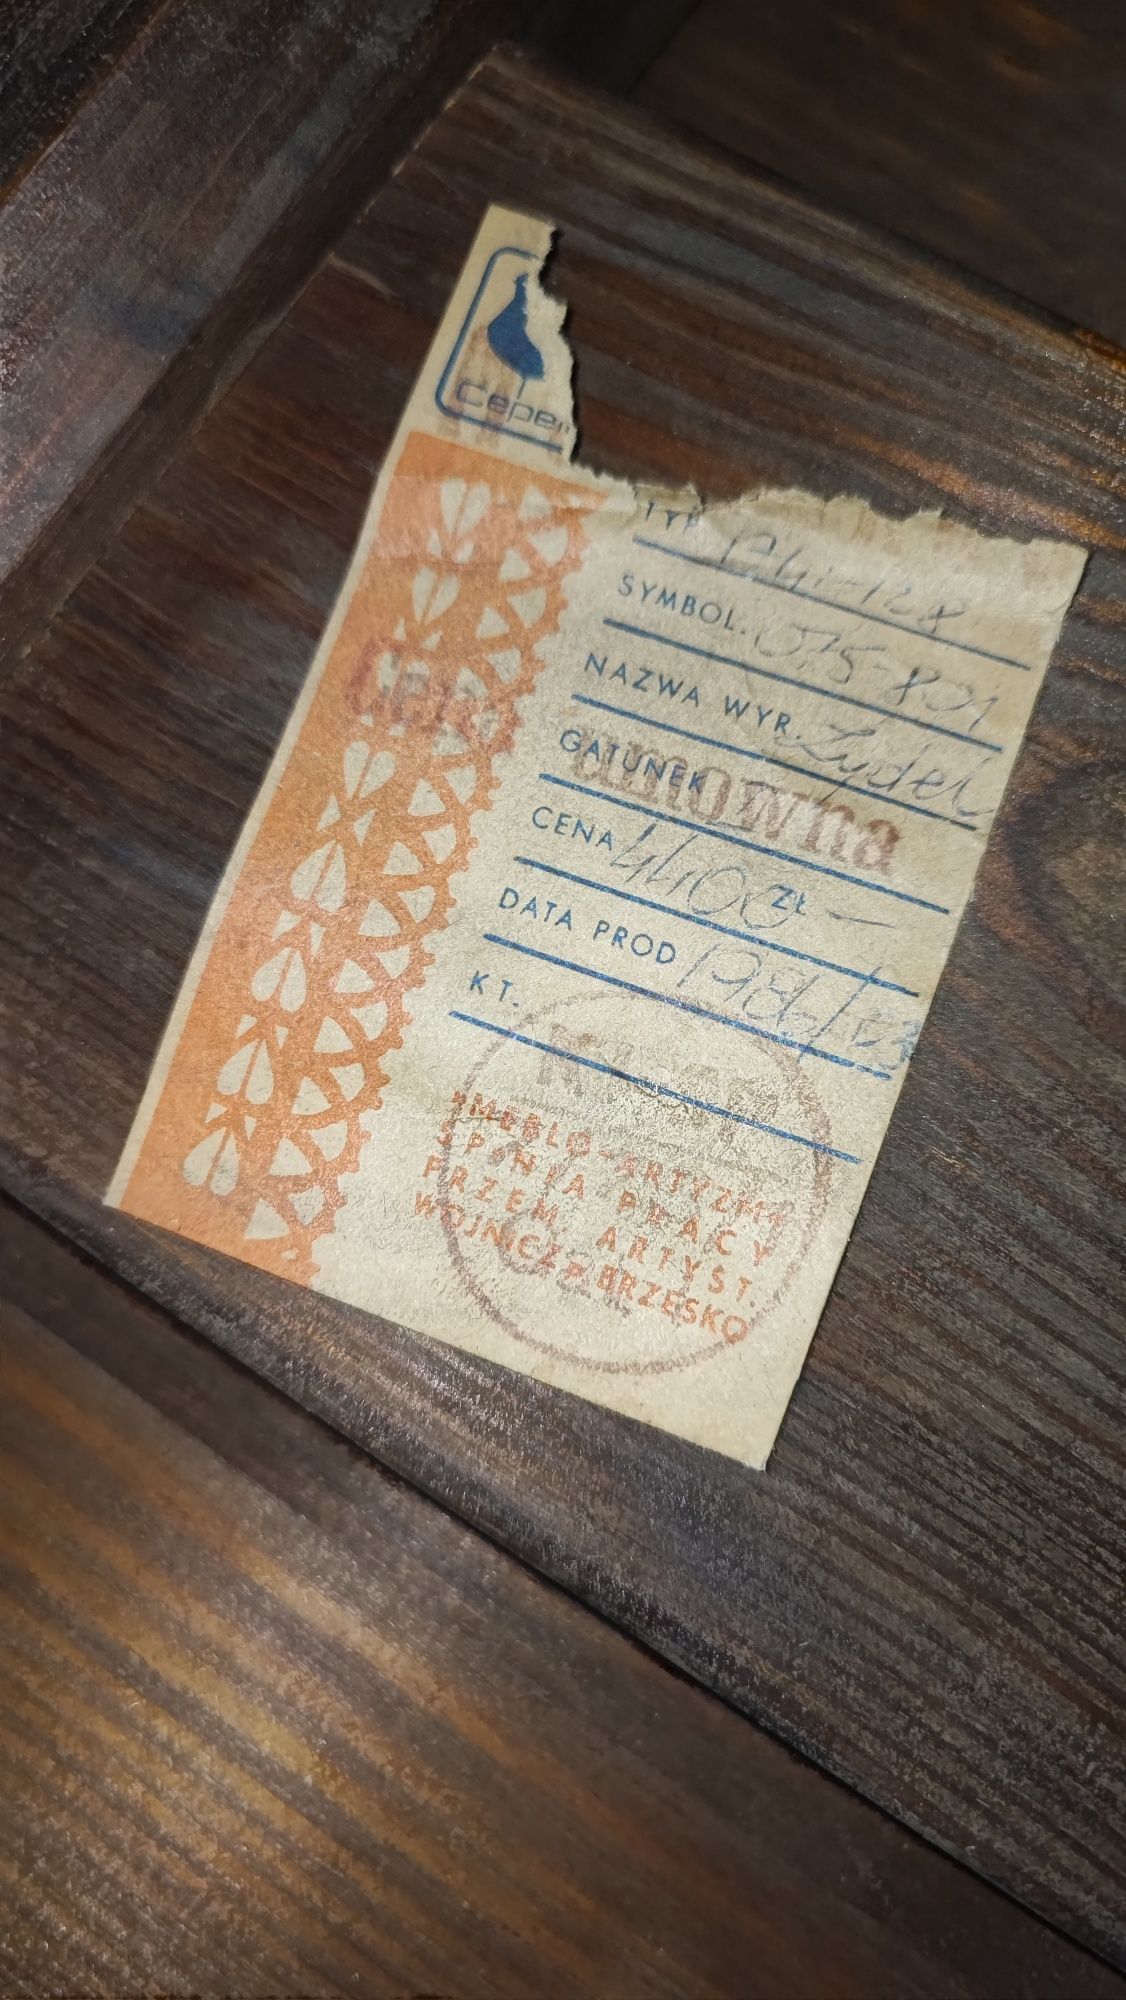 Cepe
TYP
SYMBOL. 075-801
NAZWA WYR. Zydel
GATUNEK
Cena umowna
CENA 4400 ZŁ —
DATA PROD 1986/
KT.
"MEBLO-ARTYZM"
SP-NIA PRACY
PRZEM. ARTYST.
WOJNICZ-BRZESKO